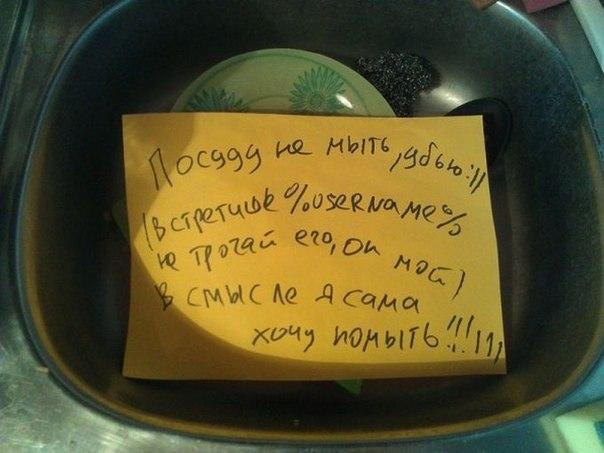 Посуду не мыть, убью!))
(встретишь %username%
не трогай его, он мой)
в смысле я сама
хочу помыть!!!111